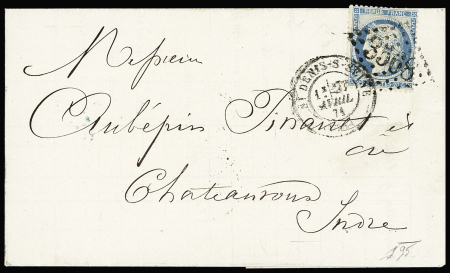 REPUB. FRANC.
3568
ST DENIS-S-SEINE
AVRIL
71
Messieurs
Aubépin Pinault et
Cie
Chateauroux
Indre